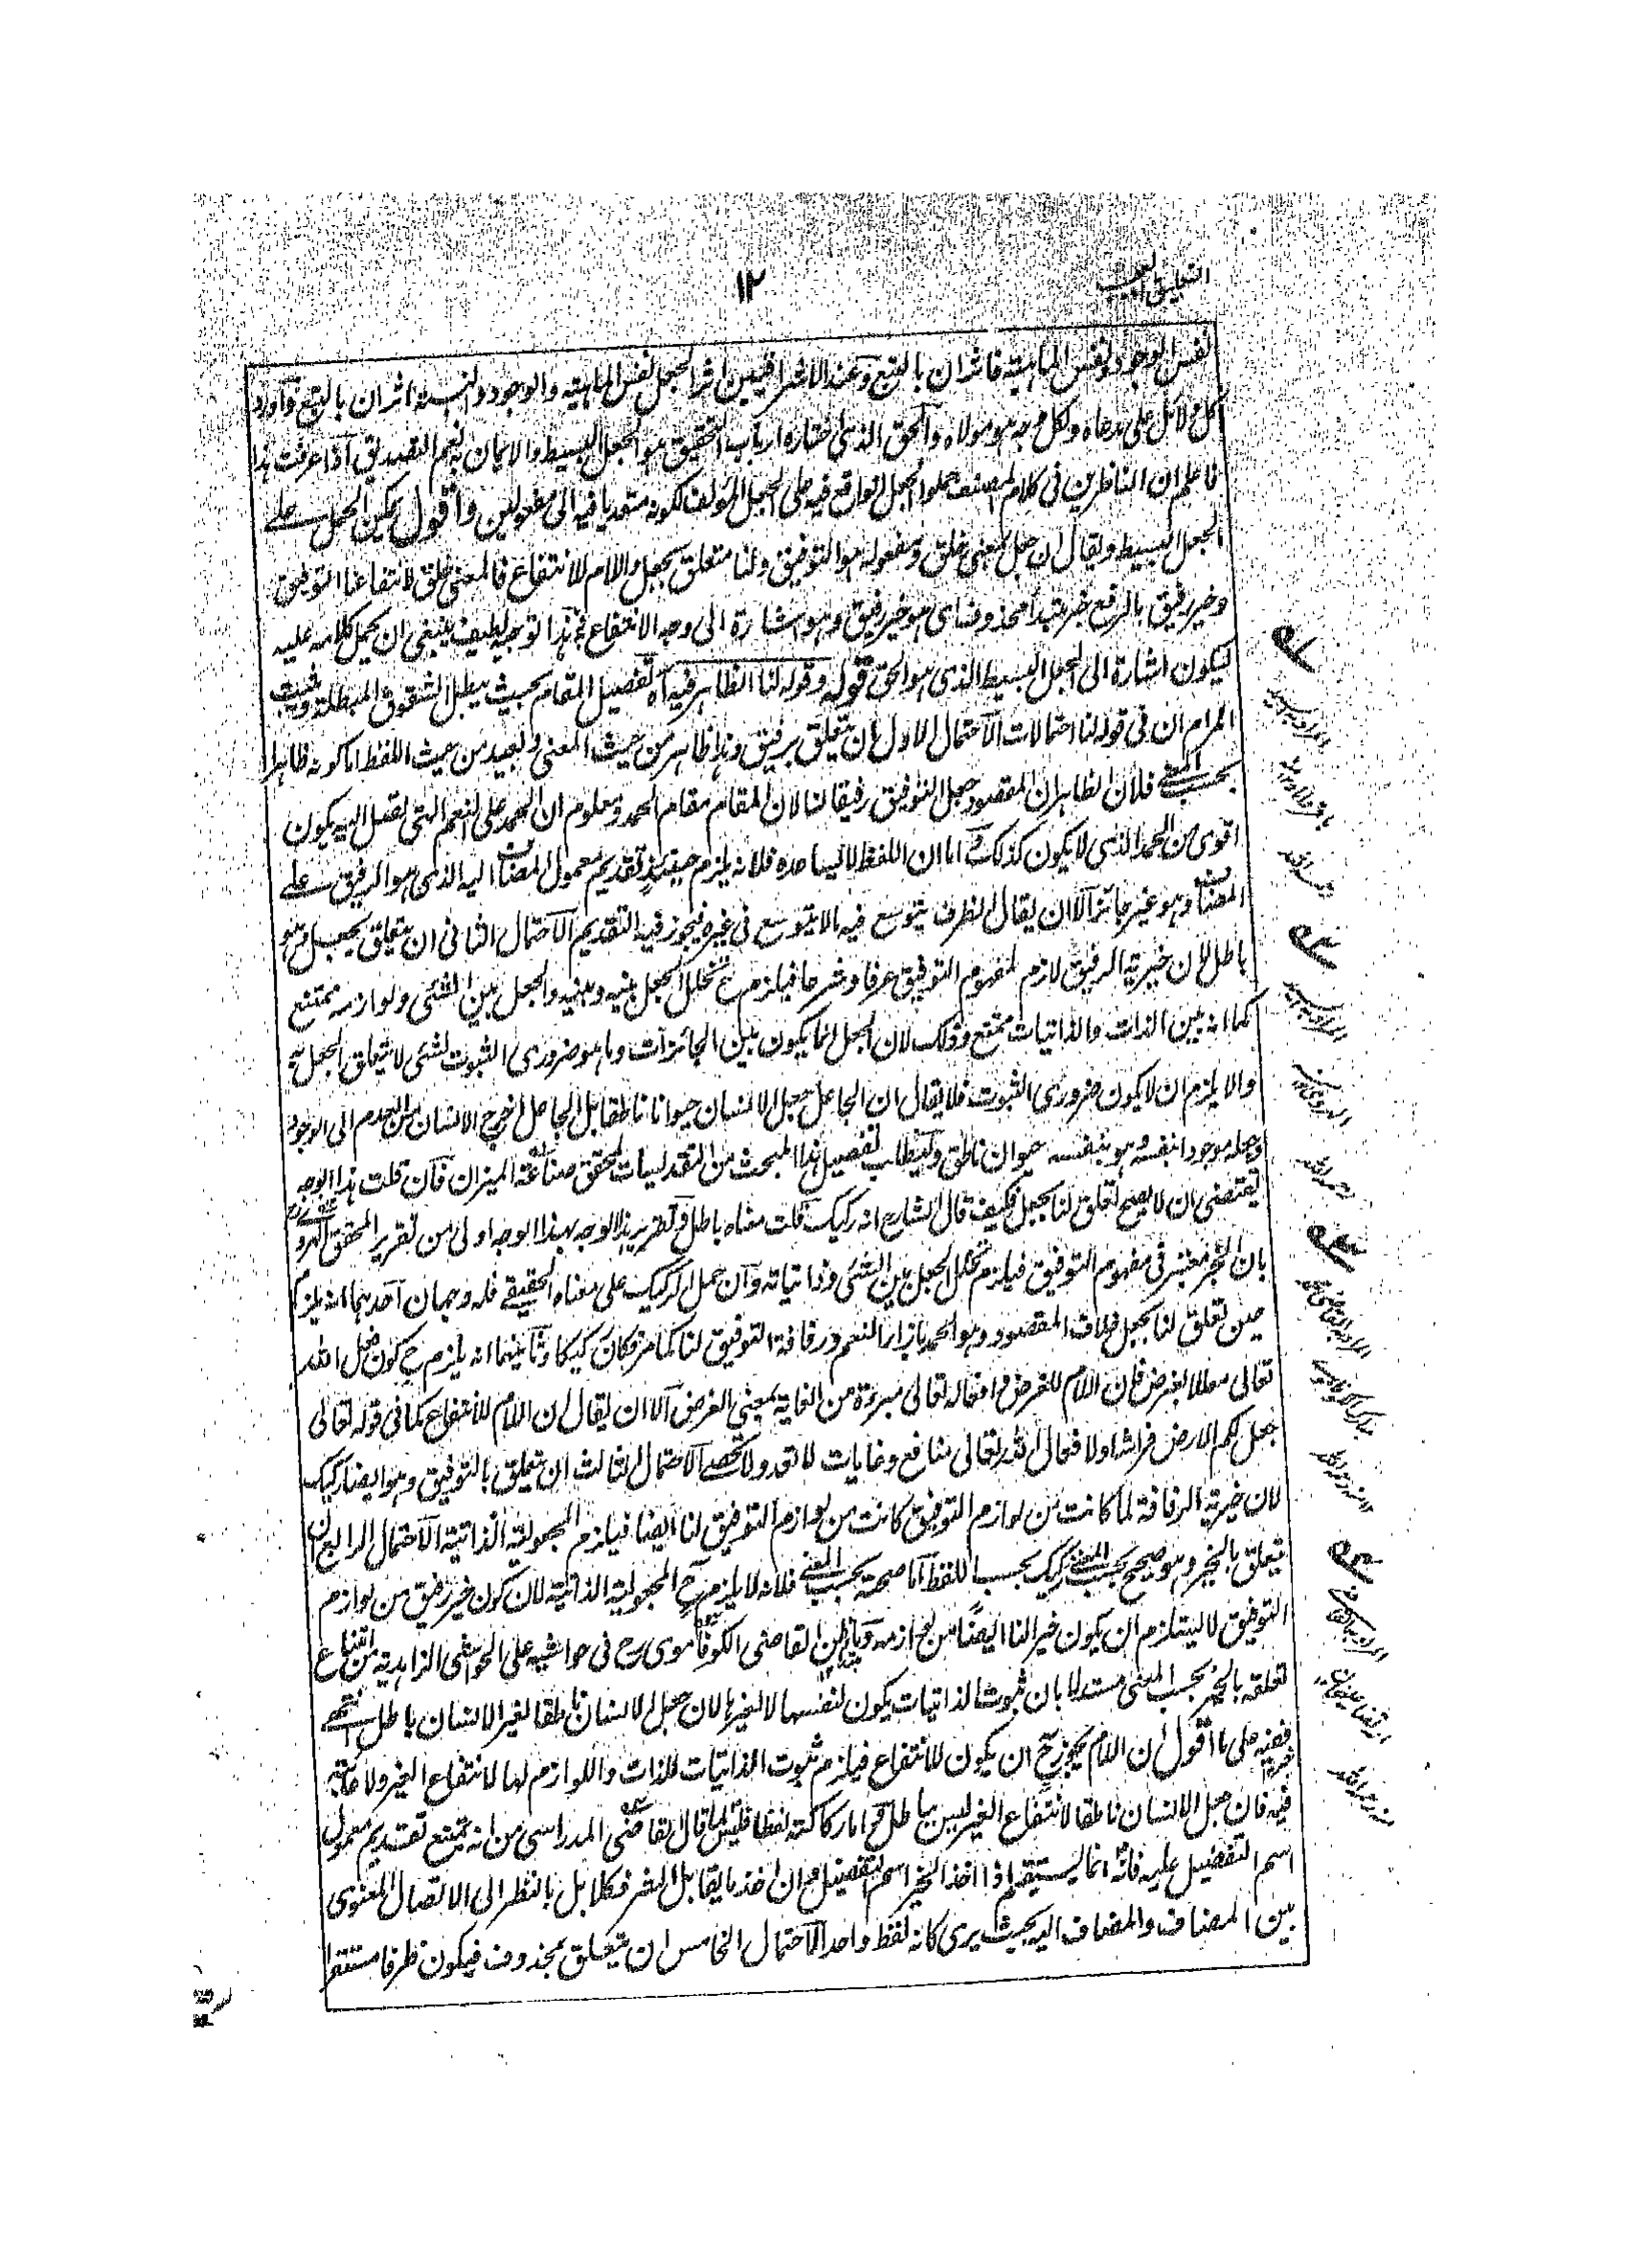 التعليق العجيب
١٢
نفس الوجود ونفس الماهية فاثران بالتبع وعند الاشراقيين اثر الجعل نفس الماهية والوجود والنسبة اثران بالتبع وآورد
كل دلائل على مدعاه ولكل وجهة هو مولاه والحق الذي اختاره ارباب التحقيق هو الجعل البسيط والايمان به نعم التصديق اذا عرفت هذا
فاعلم ان الناظرين في كلام المصنف حملوا الجعل الواقع فيه على الجعل المؤلف لكونه متعديا فيه الى مفعولين وأقول يمكن الحمل على
الجعل البسيط ويقال ان جعل بمعنى خلق ومفعوله هو التوفيق ولنا متعلق بجعل واللام للانتفاع فالمعنى خلق لانتفاعنا التوفيق
وخير رفيق بالرفع خبر مبتدأ محذوف اى هو خير رفيق وهو اشارة الى وجه الانتفاع به هذا توجيه لطيف ينبغى ان يحمل كلامه عليه
ليكون اشارة الى الجعل البسيط الذى هو الحق قوله وقوله لنا الظاهر فيه آه تفصيل المقام بحيث يبطل الشقوق المبطلة ويثبت
المرام ان فى قوله لنا احتمالات الآحتمال الاول ان يتعلق برفيق وهذا ظاهر من حيث المعنى وبعيد من حيث اللفظ اما كونه ظاهرا
بحسب المعنى فلان الظاهر ان المقصود جعل التوفيق رفيقا لنا لان المقام مقام الحمد ومعلوم ان الحمد على النعم التى تصل اليه يكون
اقوى من الحمد الذى لا يكون كذلك و اما ان اللفظ لا يساعده فلانه يلزم حينئذ تقديم معمول المضاف اليه الذى هو الرفيق على
المضاف وهو غير جائز الا ان يقال الظرف يتوسع فيه مالا يتوسع فى غيره فيجوز فيه التقديم الآحتمال الثانى ان يتعلق بجعل وهو
باطل لان خيرية الرفيق لازم لمفهوم التوفيق عرفا وشرعا فيلزم ح تخلل الجعل بينه وبينه والجعل بين الشئ ولوازمه ممتنع
كما انه بين الذات والذاتيات ممتنع وذلك لان الجعل انما يكون بين الجائزات وما هو ضرورى الثبوت لشئ لا يتعلق الجعل به
والا يلزم ان لا يكون ضرورى الثبوت فلا يقال ان الجاعل جعل الانسان حيوانا ناطقا بل الجاعل اخرج الانسان من العدم الى الوجود
وجعله موجودا بنفسه وهو بنفسه حيوان ناطق وليطلب تفصيل هذا المبحث من التقديسات لمحقق صناعة الميزان فان قلت هذا الوجه
يقتضى ان لا يصح تعلق لنا بجعل فكيف قال الشارح انه ركيك قلت معناه باطل وتقرير هذا الوجه بهذا الوجه اولى من تقرير المحقق الهروى
بان الخير معتبر فى مفهوم التوفيق فيلزم تخلل الجعل بين الشئ وذاتياته وان حمل الركيك على معناه الحقيقى فله وجهان آحدهما انه يلزم
حين تعلق لنا بجعل خلاف المقصود وهو الحمد بازاء النعم ورفاقة التوفيق لنا كما مر فكان ركيكا وثانيهما انه يلزم ح كون فعل الله
تعالى معللا بغرض فان اللام للغرض و افعاله تعالى مبرءة من الغاية بمعنى الغرض الا ان يقال ان اللام للانتفاع كما فى قوله تعالى
جعل لكم الارض فراشا ولافعال الله تعالى منافع وغايات لا تعد ولا تحصى الآحتمال الثالث ان يتعلق بالتوفيق وهو ايضا ركيك
لان خيرية الرفاقة لما كانت من لوازم التوفيق كانت من لوازم التوفيق لنا ايضا فيلزم المجعولية الذاتية الآحتمال الرابع ان
يتعلق بالخير وهو صحيح بحسب المعنى ركيك بحسب اللفظ اما صحته بحسب المعنى فلانه لا يلزم ح المجعولية الذاتية لان كون خير رفيق من لوازم
التوفيق لا يستلزم ان يكون خير لنا ايضا من لوازمه وما ظن القاضى الكوفاموى رح فى حواشيه على الحواشى الزاهدية من امتناع
تعلقه بالخير بحسب المعنى مستدلا بان ثبوت الذاتيات يكون لنفسها لا لغيرها لان جعل الانسان ناطقا لغير الانسان باطل انتهى
ففيه على ما اقول ان اللام يجوز ح ان يكون للانتفاع فيلزم ثبوت الذاتيات للذات واللوازم لها لانتفاع الغير ولا شناعة
فيه فان جعل الانسان ناطقا لانتفاع الغير ليس بباطل و اما ركاكته لفظا فليس لما قال القاضى المدراسى من انه يمتنع تقديم معمول
اسم التفضيل عليه فانه انما يستقيم اذا اخذ الخير اسم التفضيل و ان اخذ ما يقابل الشر فكلا بل بالنظر الى الاتصال المعنوى
بين المضاف والمضاف اليه بحيث يرى كانه لفظ واحد الآحتمال الخامس ان يتعلق بمحذوف فيكون ظرفا مستقرا